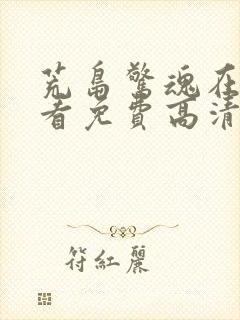 荒島驚魂在
看免費高清
符紅麗